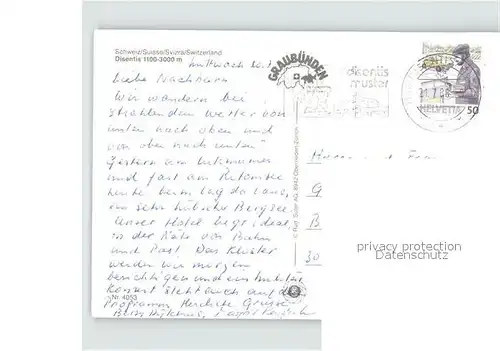 Schweiz/Suisse/Svizra/Switzerland
Disentis 1100-3000 m
Mittwoch
Liebe Nachbarn
Wir wandern bei
strahlendem Wetter von
unten nach oben und
von oben nach unten
Gestern am
und fast am Ritomsee
heute beim Lag da
ein sehr hübscher Bergsee.
Unser Hotel liegt ideal,
in der Nähe von Bahn
und Post. Das Kloster
werden wir morgen
besichtigen und ein
Konzert steht auch auf dem
Programm Herzliche Grüsse
Nr. 4053
GRAUBÜNDEN
disentis
muster
HELVETIA 50
G
B
30
privacy protection
Datenschutz